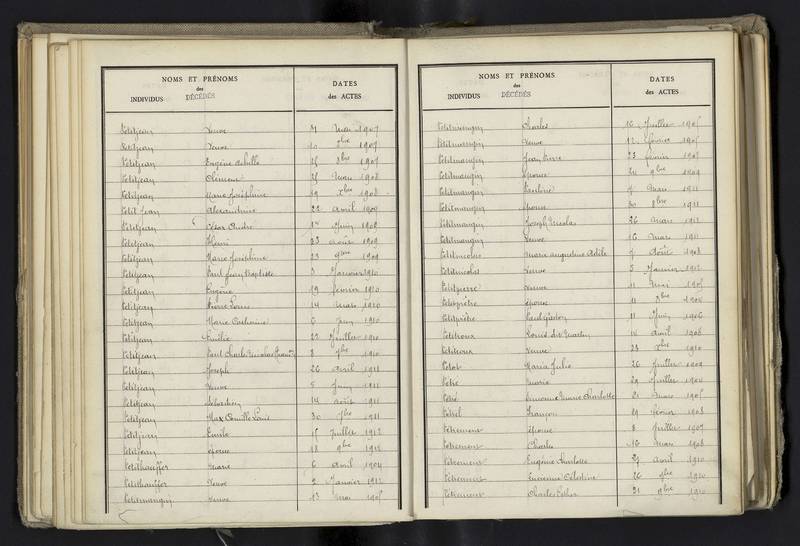 NOMS ET PRÉNOMS
des
INDIVIDUS DÉCÉDÉS
DATES
des ACTES
Petitjean Veuve 31 Mai 1907
Petitjean Veuve 10 1907
Petitjean Eugène Achille 26 8bre 1907
Petitjean Clémence 25 Mars 1908
Petitjean Marie Joséphine 19 Xbre 1908
Petit Jean Alexandrine 22 Avril 1909
Petitjean César André 14 Juin 1909
Petitjean Henri 23 Août 1909
Petitjean Marie Joséphine 23 9bre 1909
Petitjean Paul Jean Baptiste 3 Janvier 1910
Petitjean Eugénie 19 février 1910
Petitjean Pierre Louis 14 Mars 1910
Petitjean Marie Catherine 6 Juin 1910
Petitjean Emilie 22 Juillet 1910
Petitjean Paul Charles Nicolas 8 9bre 1910
Petitjean Joseph 26 Avril 1911
Petitjean Veuve 5 Juin 1911
Petitjean Sébastien 14 Août 1911
Petitjean Max Camille Louis 30 9bre 1911
Petitjean Emile 15 Juillet 1912
Petitjean épouse 18 9bre 1912
Petithauffer Marie 6 Avril 1904
Petithauffer Veuve 2 Janvier 1912
Petitmangin Veuve 13 Mai 1905
NOMS ET PRÉNOMS
des
INDIVIDUS DÉCÉDÉS
DATES
des ACTES
Petitmangin Charles 16 Juillet 1905
Petitmangin Veuve 12 février 1905
Petitmangin Jean Pierre 23 février 1908
Petitmangin épouse 24 9bre 1909
Petitmangin Pauline 9 Mars 1911
Petitmangin épouse 30 8bre 1911
Petitmangin Joseph Nicolas 26 Mars 1912
Petitmangin Veuve 16 Mars 1911
Petitnicolas Marie Augustine Adèle 9 Août 1903
Petitnicolas Veuve 5 Janvier 1912
Petitpierre Veuve 11 Mai 1905
Petitprêtre épouse 11 Xbre 1904
Petitprêtre Paul Gaston 11 Juin 1906
Petitroux Louis dit Martin 14 Avril 1906
Petitroux Veuve 23 Xbre 1910
Petot Maria Julie 26 Juillet 1909
Petré Marie 29 Juillet 1904
Petré Marie Charlotte 21 Mars 1905
Petrel François 19 février 1908
Petrement épouse 8 Juillet 1907
Petrement Charles 16 Mars 1908
Petrement Eugénie Charlotte 29 Avril 1910
Petrement Lucienne Célestine 26 9bre 1910
Petrement Charles 21 9bre 1910